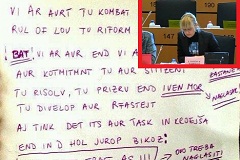 VI AR AVRT TU KOMBAT
RUL OF LOU TU RIFORM
(BAT!) VI AR AUR END VI A
AUR KOTMITMNT TU AUR SITIZENI
TU RISOLV, TU PRIZRV END IVEN MOR
TU DIVELOP AUR RFASTEJT
NAGLASIT
AJ TINK DET ITS AUR TASK IN KROEJŠA
END IN D HOL JUROP BIKOZ!
AS !!!
OVO TREBA
NAGLASITI